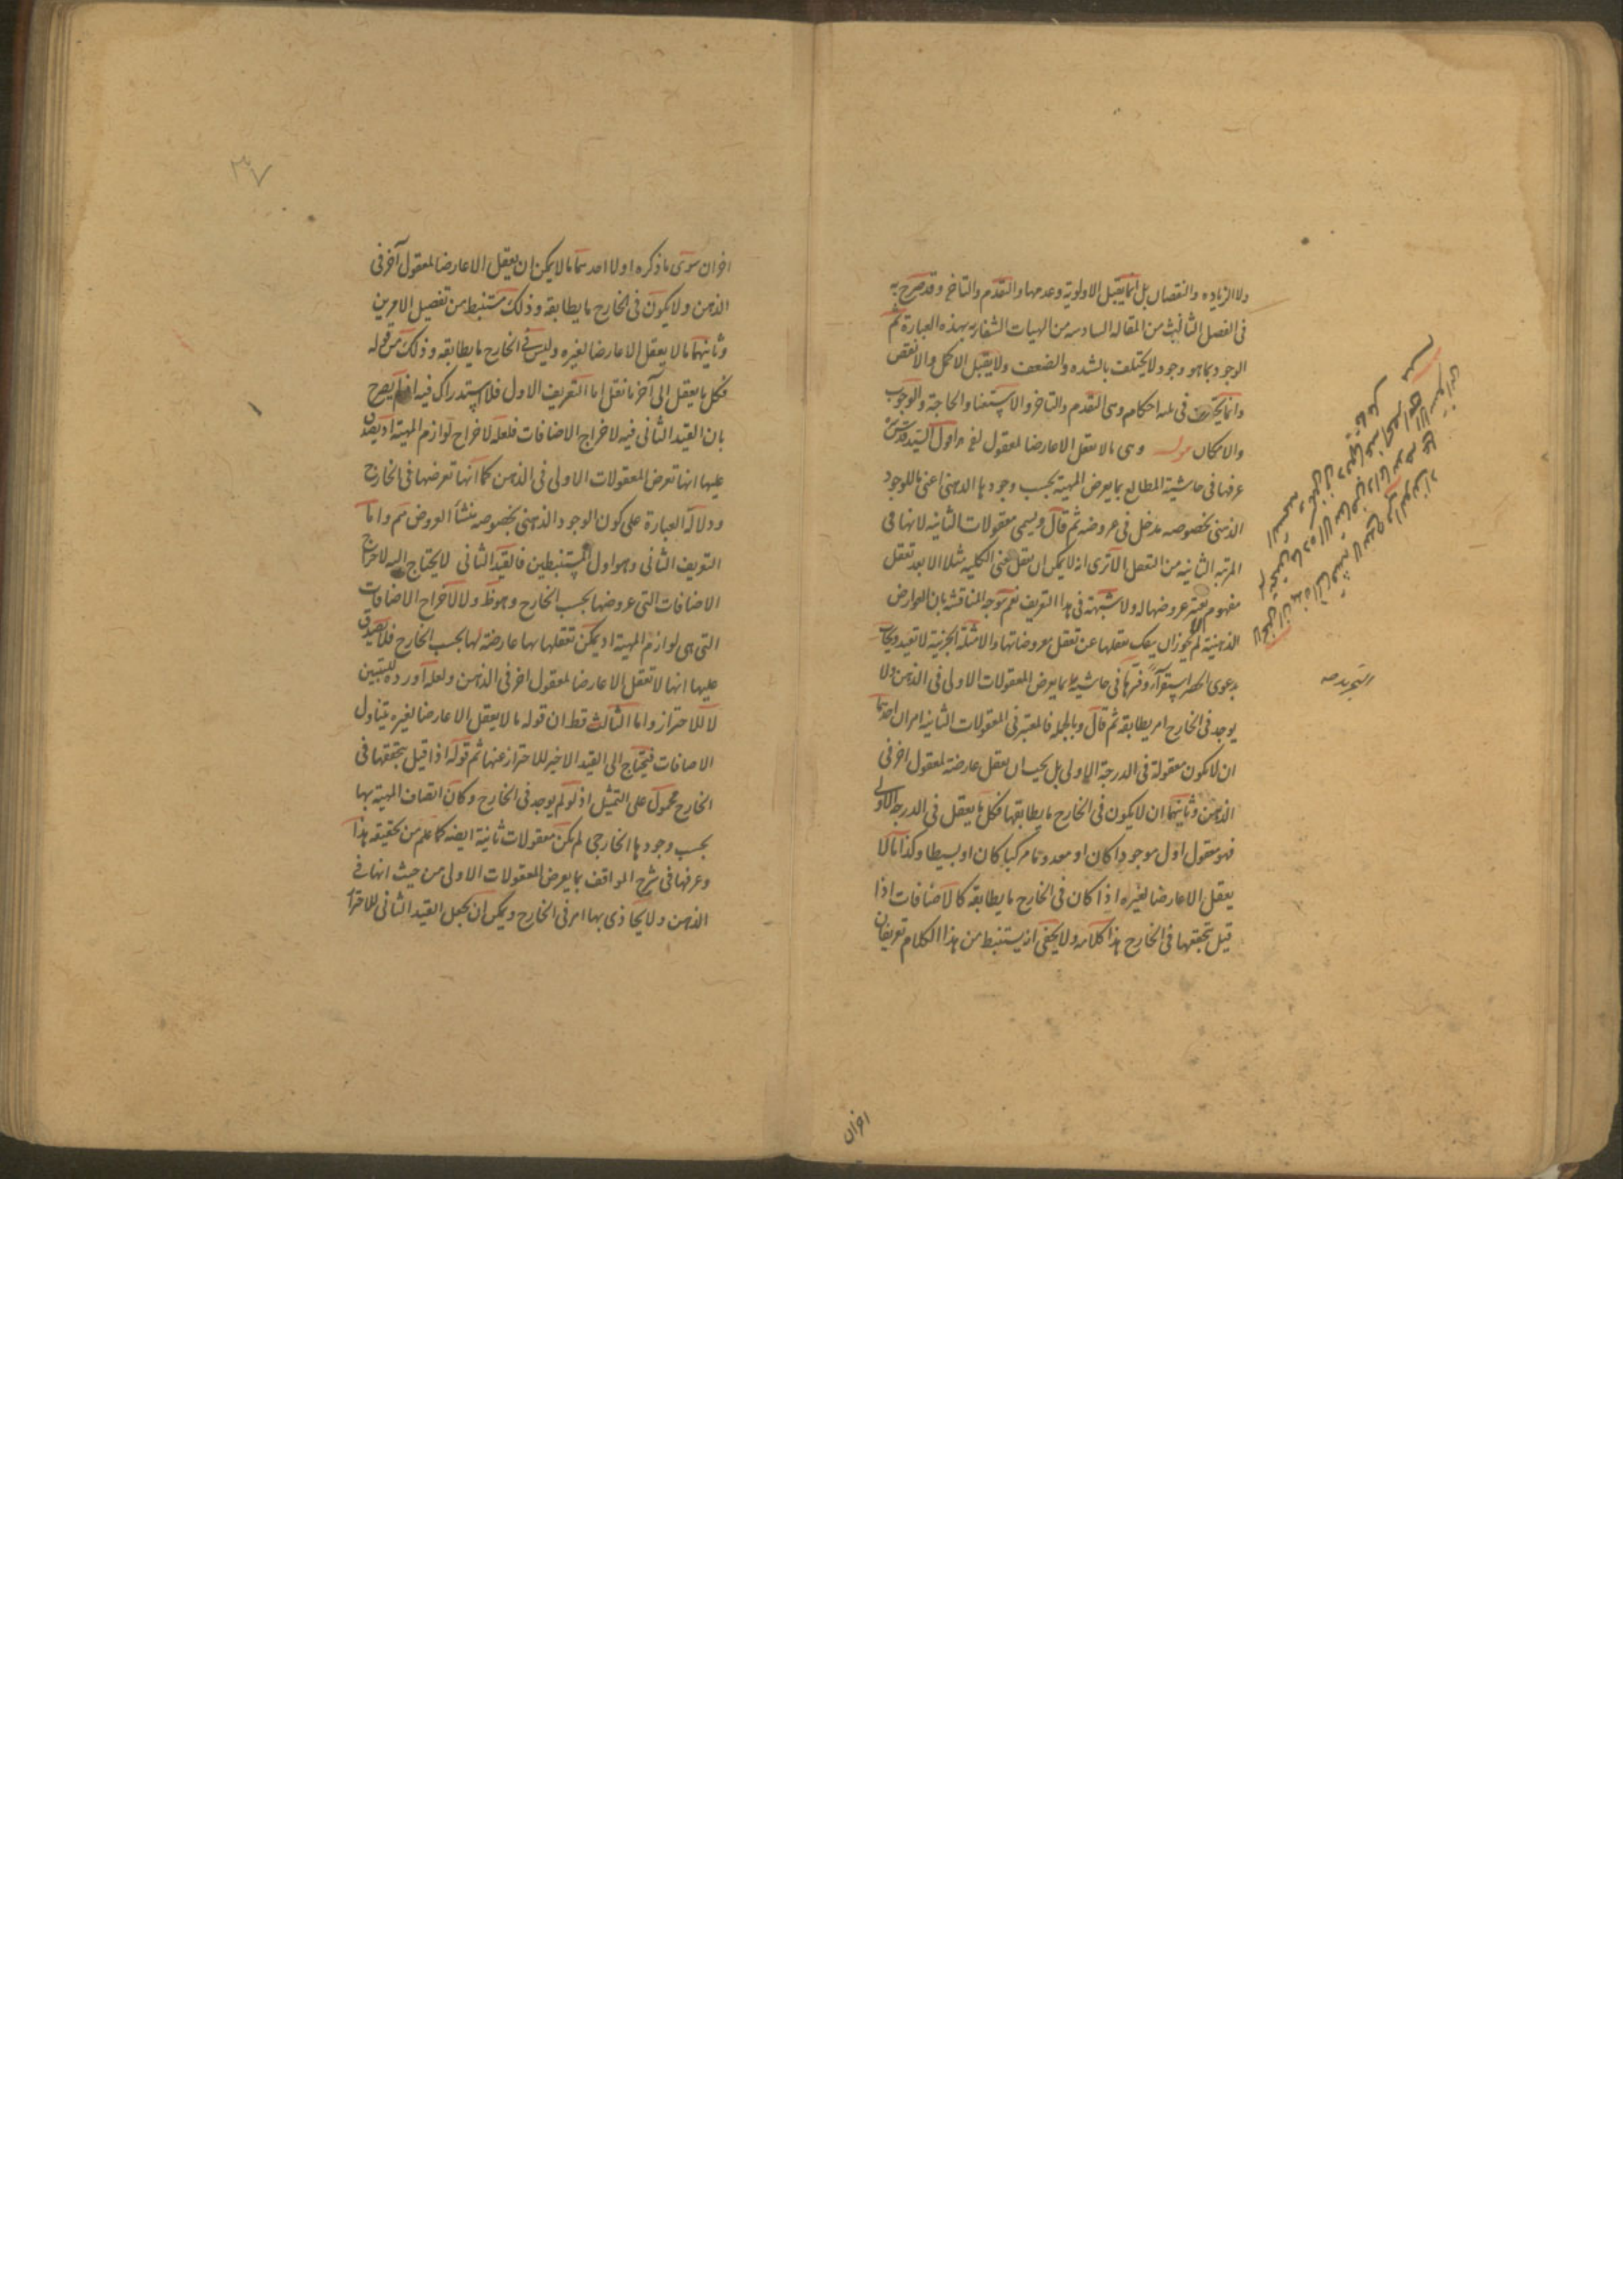 ولا الزياده والنقصان بل انما يقبل الاولوية وعدمها والتقدم والتاخر وقد صرح به
فى الفصل الثالث من المقاله السادسه من الهيات الشفا بهذه العبارة ثم
الوجود بما هو وجود لا يختلف بالشده والضعف ولا يقبل الاكمل والانقص
وانما يختلف فى ثلثه احكام وهى التقدم والتاخر والاستغنا والحاجة والوجوب
والامكان قوله وهى ما لا يعقل الا عارضا لمعقول اخر اقول السيد قدس سره
عرفها فى حاشية المطالع بما يعرض المهية بحسب وجودها الذهنى اعنى ما للوجود
الذهنى بخصوصه مدخل فى عروضه ثم قال ويسمى معقولات الثانيه لانها فى
المرتبه الثانيه من التعقل الا ترى انه لا يمكن ان يعقل معنى الكليه مثلا الا بعد تعقل
مفهوم يعتبر عروضها له ولا شبهة فى هذا التعريف نعم يتوجه المناقشه بان العوارض
الذهنية لم لا يجوز ان ينفك تعقلها عن تعقل معروضاتها والامثلة الجزئية لا تفيد ويجاب
بدعوى الحصر استقراء وفسرها فى حاشيه بما يعرض المعقولات الاولى فى الذهن ولا
يوجد فى الخارج امر يطابقه ثم قال وبالجمله فالمعتبر فى المعقولات الثانيه امران احدهما
ان لا تكون معقولة فى الدرجة الاولى بل يجب ان يعقل عارضة لمعقول اخر فى
الذهن وثانيهما ان لا يكون فى الخارج ما يطابقها فكل ما يعقل فى الدرجة الاولى
فهو معقول اول موجودا كان او معدوما مركبا كان او بسيطا وكذا ما لا
يعقل الا عارضا لغيره اذا كان فى الخارج ما يطابقه كالاضافات اذا
قيل بتحققها فى الخارج هذا كلامه ولا يخفى انه يستنبط من هذا الكلام تعريفان
اخران
٣٧
اخران سوى ما ذكره اولا احدهما ما لا يمكن ان يعقل الا عارضا لمعقول آخر فى
الذهن ولا يكون فى الخارج ما يطابقه وذلك مستنبط من تفصيل الامرين
وثانيهما ما لا يعقل الا عارضا لغيره وليس فى الخارج ما يطابقه وذلك من قوله
فكل ما يعقل الى آخر ما نقل اما التعريف الاول فلا استدراك فيه اذ لم يصرح
بان القيد الثانى فيه لاخراج الاضافات فلعله لاخراج لوازم المهية اذ يصدق
عليها انها تعرض المعقولات الاولى فى الذهن كما انها تعرضها فى الخارج
ودلالة العبارة على كون الوجود الذهنى بخصوصه منشأ العروض مم واما
التعريف الثانى وهو اول المستنبطين فالقيد الثانى لا يحتاج اليه لاخراج
الاضافات التى عروضها بحسب الخارج وهو ظ ولا لاخراج الاضافات
التى هى لوازم المهية اذ يمكن تعقلها بها عارضة لها بحسب الخارج فلا يصدق
عليها انها لا تعقل الا عارضا لمعقول اخر فى الذهن ولعله اورده للتبيين
لا للاحتراز واما الثالث قط ان قوله ما لا يعقل الا عارضا لغيره يتناول
الاضافات فيحتاج الى القيد الاخير للاحتراز عنها ثم قوله اذا قيل بتحققها فى
الخارج محمول على التمثيل اذ لو لم يوجد فى الخارج وكان اتصاف المهية بها
بحسب وجودها الخارجى لم تكن معقولات ثانية ايضه كما علم من تحقيقه هذا
وعرفها فى شرح المواقف بما يعرض للمعقولات الاولى من حيث انها فى
الذهن ولا يحاذى بها امر فى الخارج ويمكن ان يجعل القيد الثانى للاحتراز